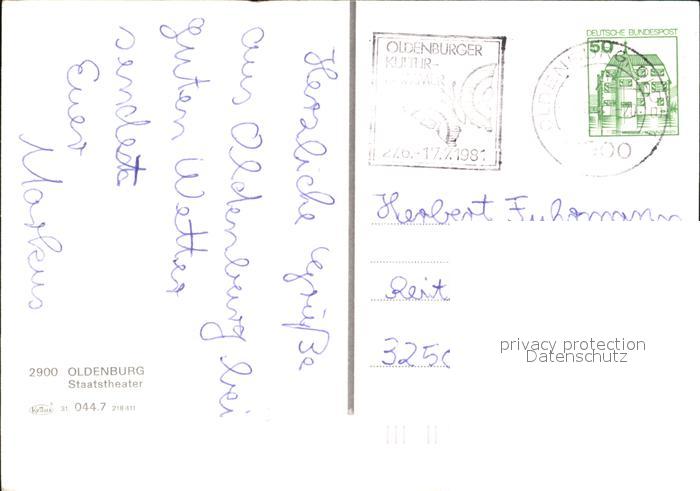 Herzliche Grüße
aus Oldenburg bei
guten Wetter
sendet
Euer
Markus
2900 OLDENBURG
Staatstheater
Krüger 31 044.7 218 411
OLDENBURGER
KULTUR-
SOMMER
27.6.-17.7.1981
DEUTSCHE BUNDESPOST
50
OLDENBURG
2900
Herbert Fuhrmann
Reit
325
privacy protection
Datenschutz